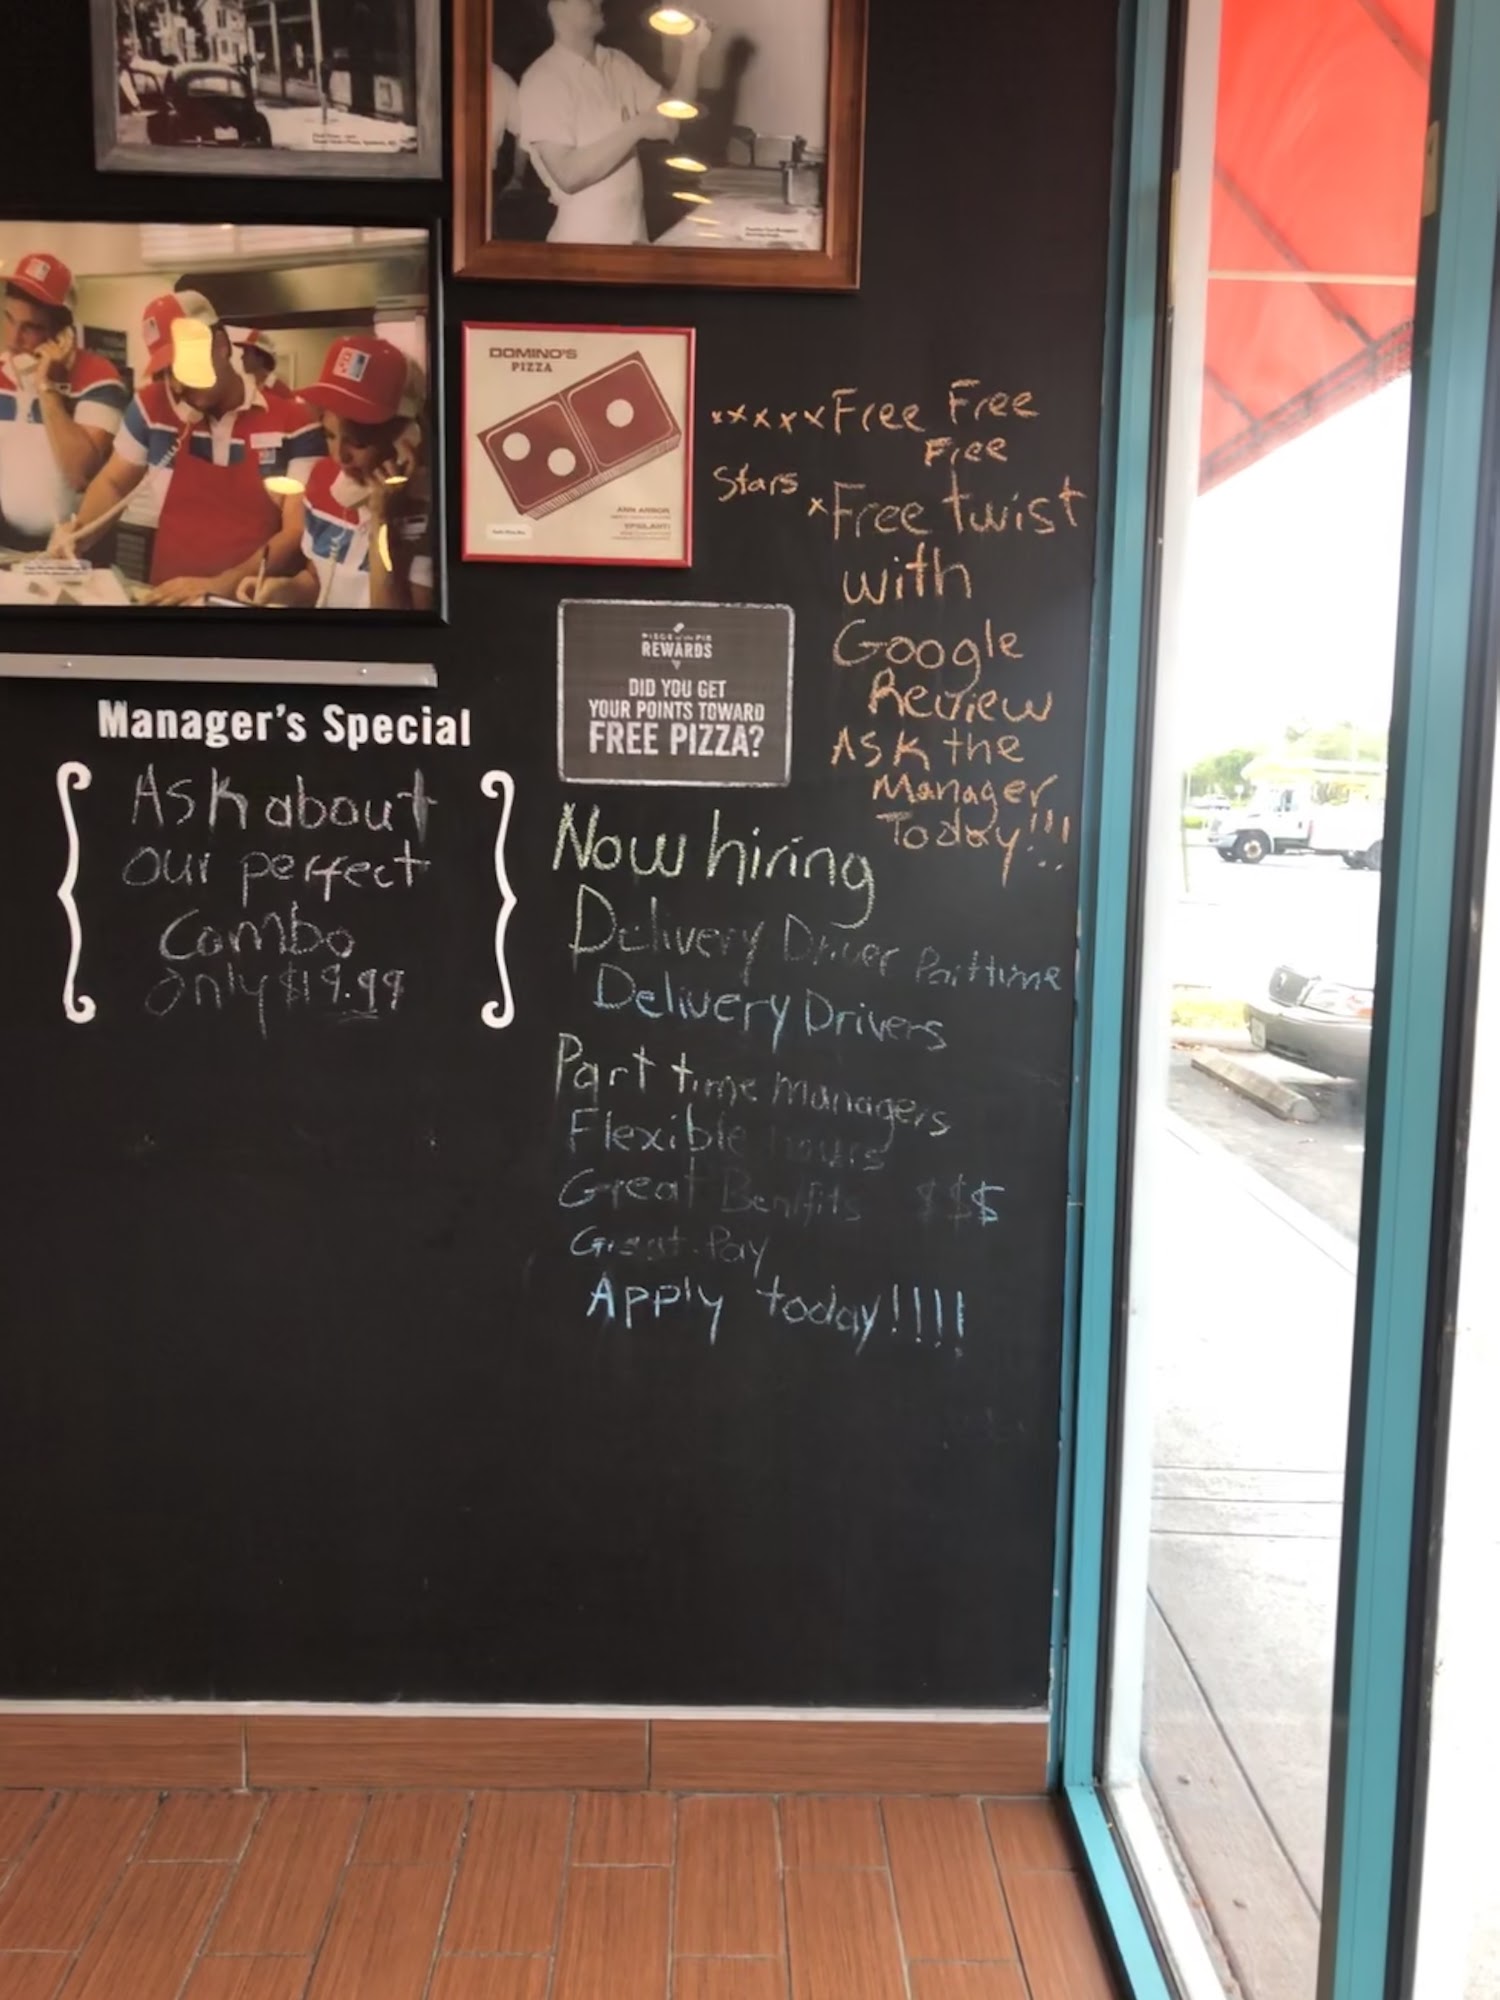 DOMINO'S
PIZZA
ANN ARBOR
YPSILANTI
xxxxx Free Free
Free
Stars
x Free twist
with
Google
Review
Ask the
Manager
Today!!!
REWARDS
DID YOU GET
YOUR POINTS TOWARD
FREE PIZZA?
Manager's Special
Ask about
our perfect
Combo
only $19.99
Now hiring
Delivery Driver Parttime
Delivery Drivers
Part time managers
Flexible hours
Great Benifits $$$
Great Pay
Apply today!!!!